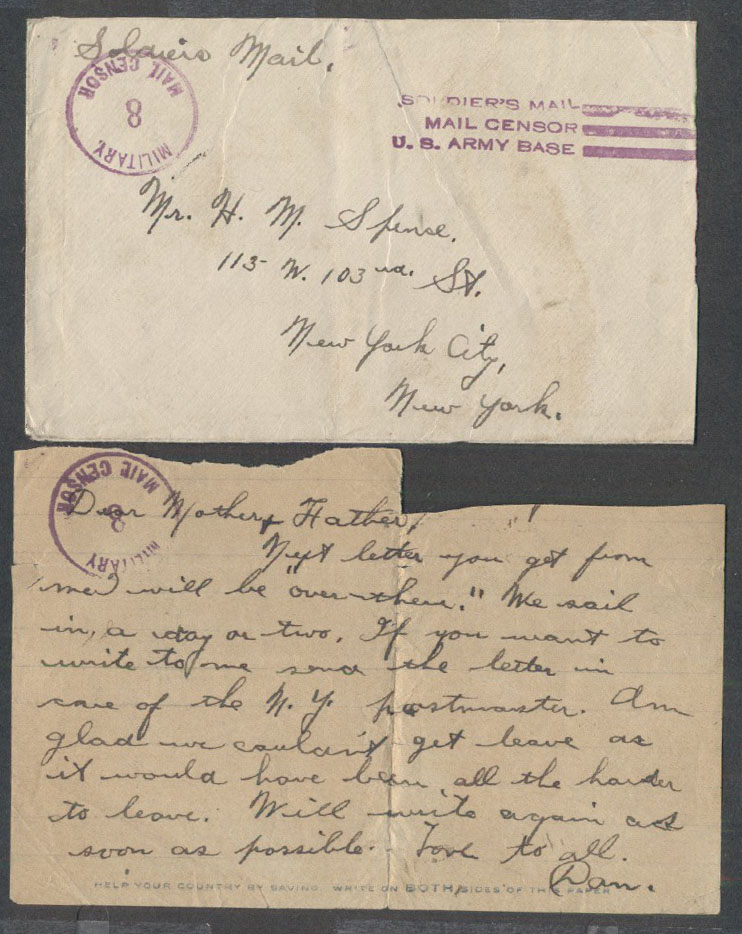 Soldiers Mail.
MILITARY.
MAIL CENSOR
8
SOLDIER'S MAIL
MAIL CENSOR
U. S. ARMY BASE
Mr. H. M. Spense.
115 W. 103rd. St.
New York City,
New York.
MILITARY
MAIL CENSOR
8
Dear Mother & Father,
Next letter you get from
me will be "over there." We sail
in a day or two. If you want to
write to me send the letter in
care of the N. Y. postmaster. Am
glad we couldn't get leave as
it would have been all the harder
to leave. Will write again as
soon as possible. Love to all.
Dan.
HELP YOUR COUNTRY BY SAVING. WRITE ON BOTH SIDES OF THIS PAPER